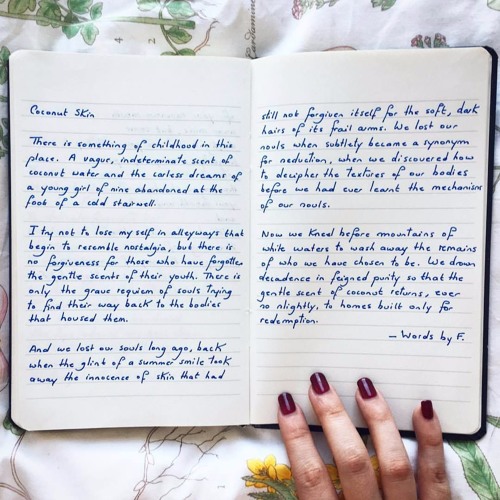 Coconut Skin
There is something of childhood in this
place. A vague, indeterminate scent of
coconut water and the careless dreams of
a young girl of nine abandoned at the
foot of a cold stairwell.
I try not to lose myself in alleyways that
begin to resemble nostalgia, but there is
no forgiveness for those who have forgotten
the gentle scents of their youth. There is
only the grave requiem of souls trying
to find their way back to the bodies
that housed them.
And we lost our souls long ago, back
when the glint of a summer smile took
away the innocence of skin that had
still not forgiven itself for the soft, dark
hairs of its frail arms. We lost our
souls when subtlety became a synonym
for seduction, when we discovered how
to decipher the textures of our bodies
before we had ever learnt the mechanisms
of our souls.
Now we kneel before mountains of
white waters to wash away the remains
of who we have chosen to be. We drown
decadence in feigned purity so that the
gentle scent of coconut returns, ever
so slightly, to homes built only for
redemption.
— Words by F.